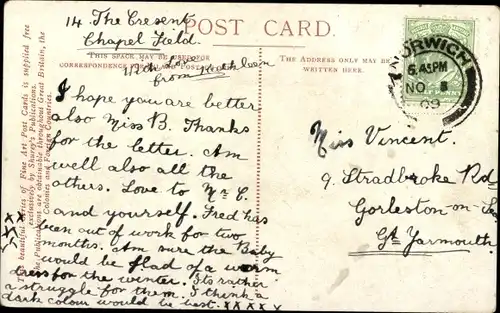 14. The Cresent
Chapel Field.
POST CARD.
THIS SPACE MAY BE USED FOR
CORRESPONDENCE
THE ADDRESS ONLY MAY BE
WRITTEN HERE.
With Love
from Kathleen
I hope you are better
also Miss B. Thanks
for the letter. Am
well also all the
others. Love to Mr C.
and yourself. Fred has
been out of work for two
months. Am sure the Baby
would be glad of a warm
dress for the winter. Its rather
a struggle for them. I think a
dark colour would be best. XXXX
XX
XX
X
Miss Vincent.
9. Stradbroke Rd
Gorleston-on-S
Gt Yarmouth.
NORWICH
6.45PM
NO 3
09
beautiful series of Fine Art Post Cards is supplied free
exclusively by Shurey's Publications.
the Publications are obtainable throughout Great Britain, the
Colonies and Foreign Countries.